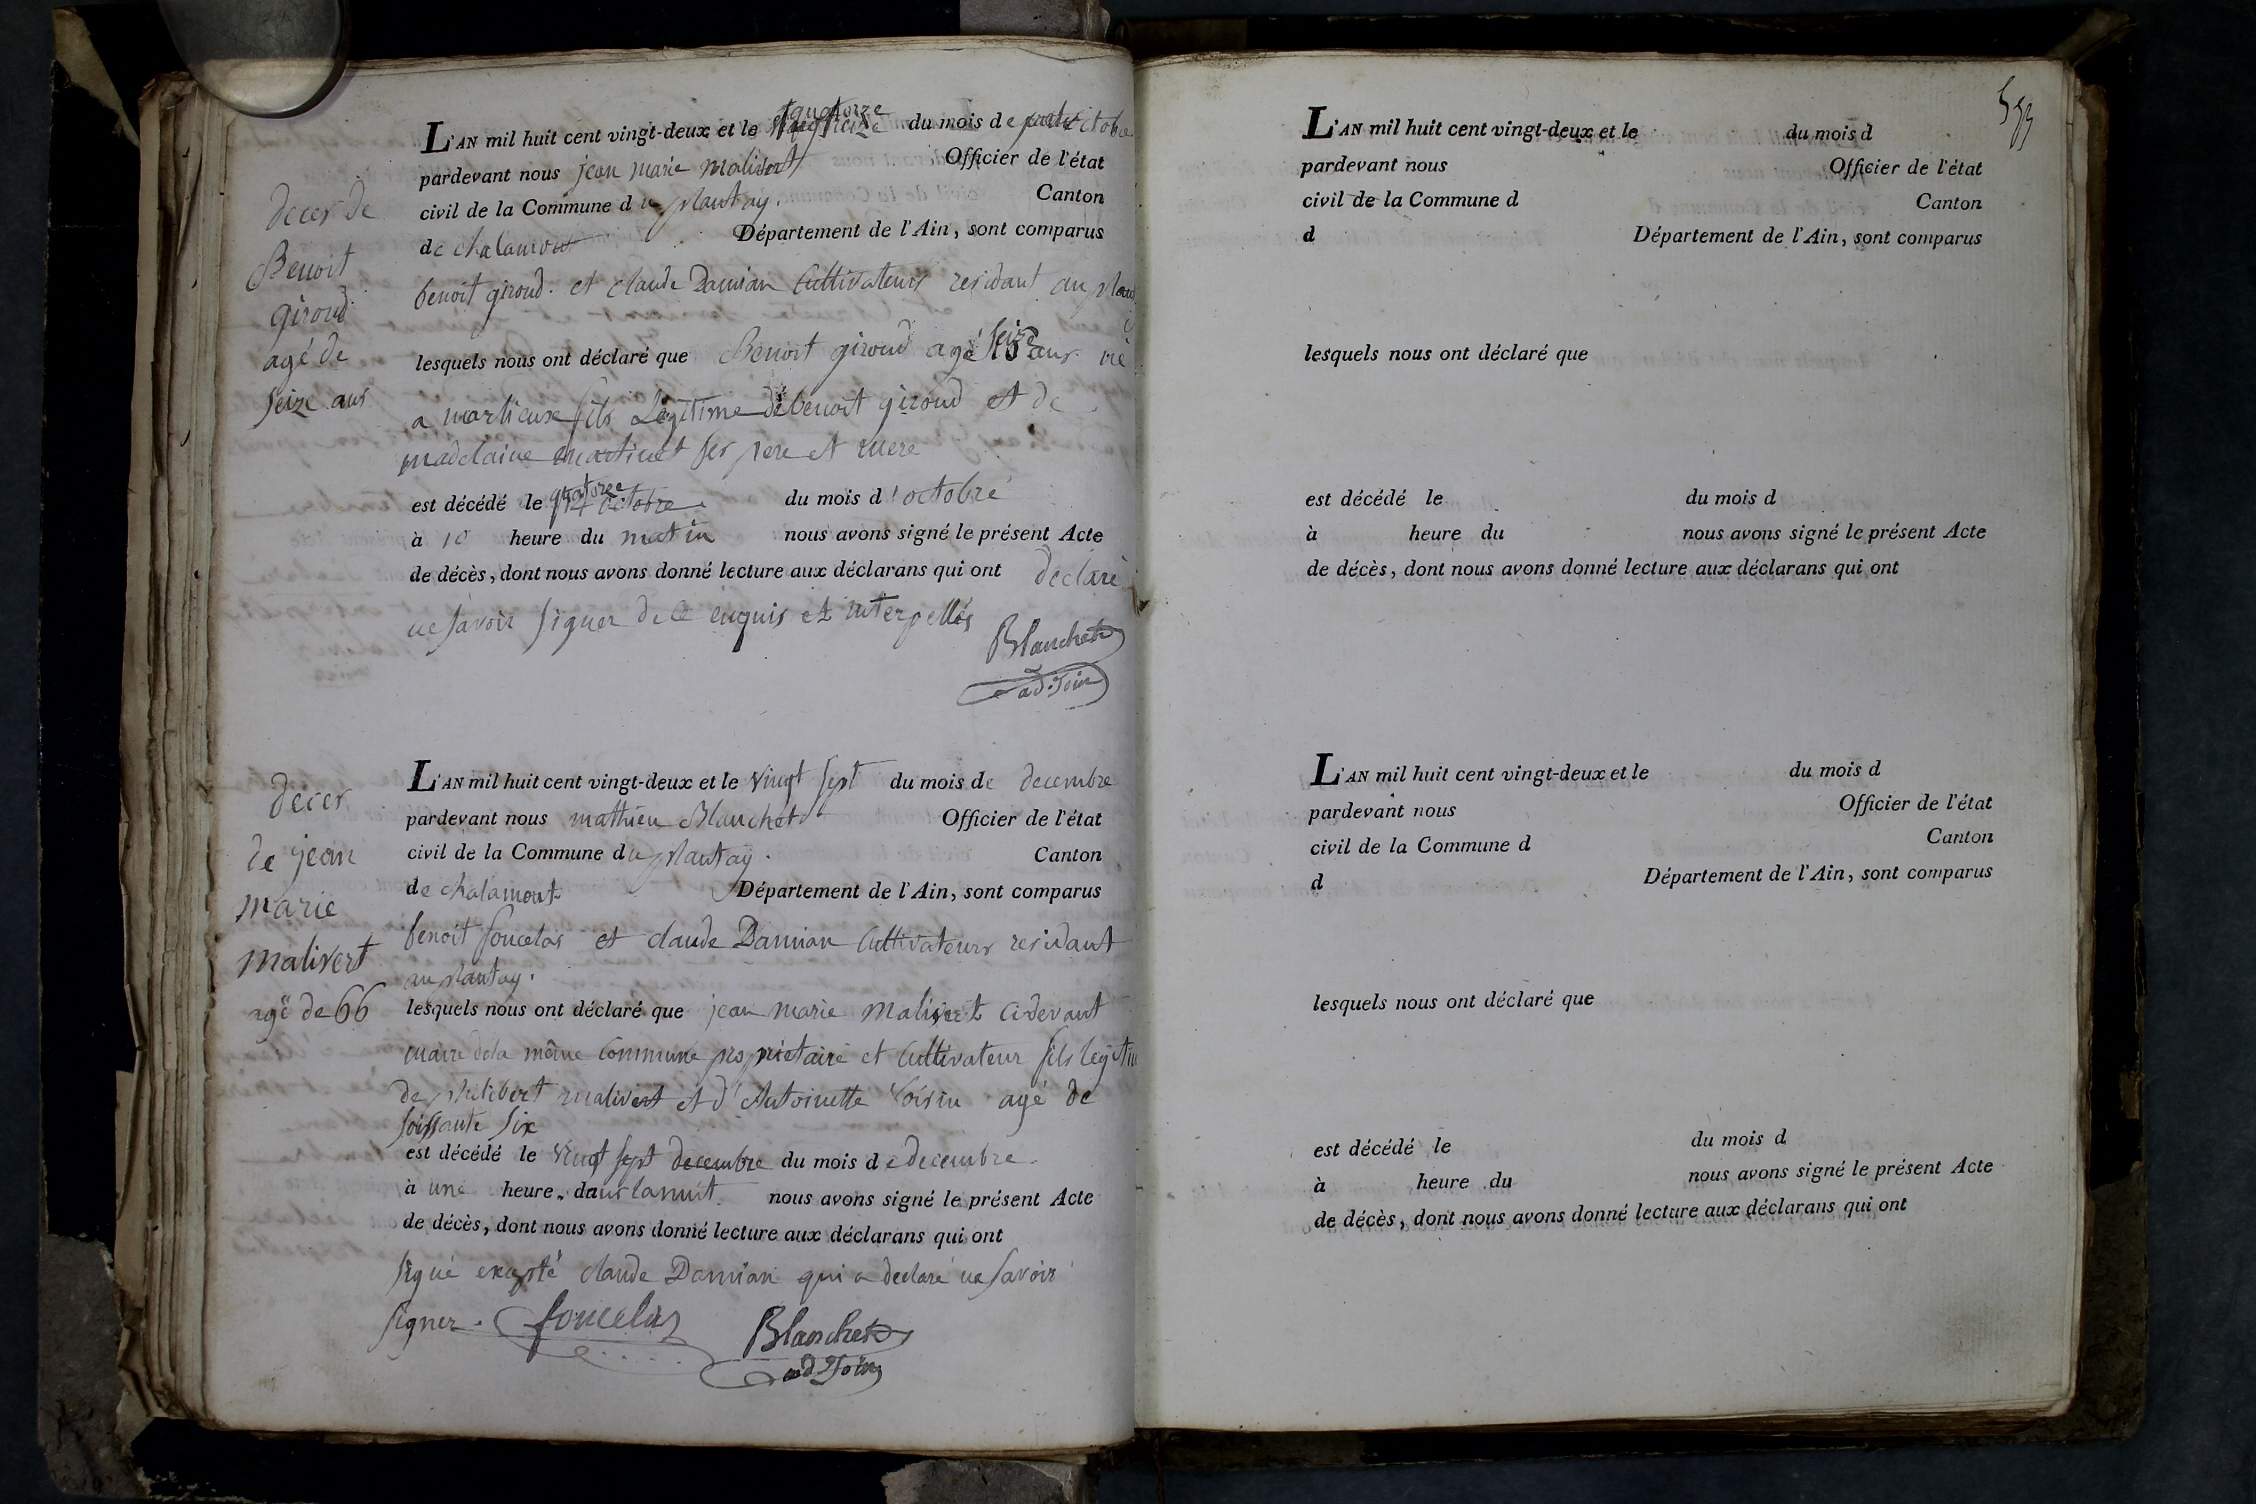 decer de
Benoit
giroud
agé de
seize ans
L'AN mil huit cent vingt-deux et le quatorze du mois de octobre
pardevant nous jean marie malivert Officier de l'état
civil de la Commune du plantay. Canton
de chalamont Département de l'Ain, sont comparus
benoit giroud. et claude Damian Cultivateurs residant au plant
lesquels nous ont déclaré que Benoit giroud agé seize ans né
a marlieux fils Legitime de benoit giroud et de
madelaine martinet ses pere et mere
est décédé le quatorze octobre du mois d'octobre
à 10 heure du matin nous avons signé le présent Acte
de décès, dont nous avons donné lecture aux déclarans qui ont declaré
ne savoir signer de ce enquis et interpellés
Blanchet
adjoin
decer
de jean
marie
malivert
agé de 66
L'AN mil huit cent vingt-deux et le vingt sept du mois de decembre
pardevant nous mathieu Blanchet Officier de l'état
civil de la Commune du plantay. Canton
de chalamont Département de l'Ain, sont comparus
benoit foucelas et claude Damian Cultivateurs residant
au plantay.
lesquels nous ont déclaré que jean marie malivert cidevant
maire dela même Commune propriétaire et Cultivateur fils legitim
de philibert malivert et d'Antoinette Voisin agé de
soissante six
est décédé le vingt sept decembre du mois de decembre.
à une heure dans lanuit nous avons signé le présent Acte
de décès, dont nous avons donné lecture aux déclarans qui ont
signé exepté claude Damian qui a declaré ne savoir
signer. foucelas Blanchet
adjoin
L'AN mil huit cent vingt-deux et le du mois d
pardevant nous Officier de l'état
civil de la Commune d Canton
d Département de l'Ain, sont comparus
lesquels nous ont déclaré que
est décédé le du mois d
à heure du nous avons signé le présent Acte
de décès, dont nous avons donné lecture aux déclarans qui ont
L'AN mil huit cent vingt-deux et le du mois d
pardevant nous Officier de l'état
civil de la Commune d Canton
d Département de l'Ain, sont comparus
lesquels nous ont déclaré que
est décédé le du mois d
à heure du nous avons signé le présent Acte
de décès, dont nous avons donné lecture aux déclarans qui ont